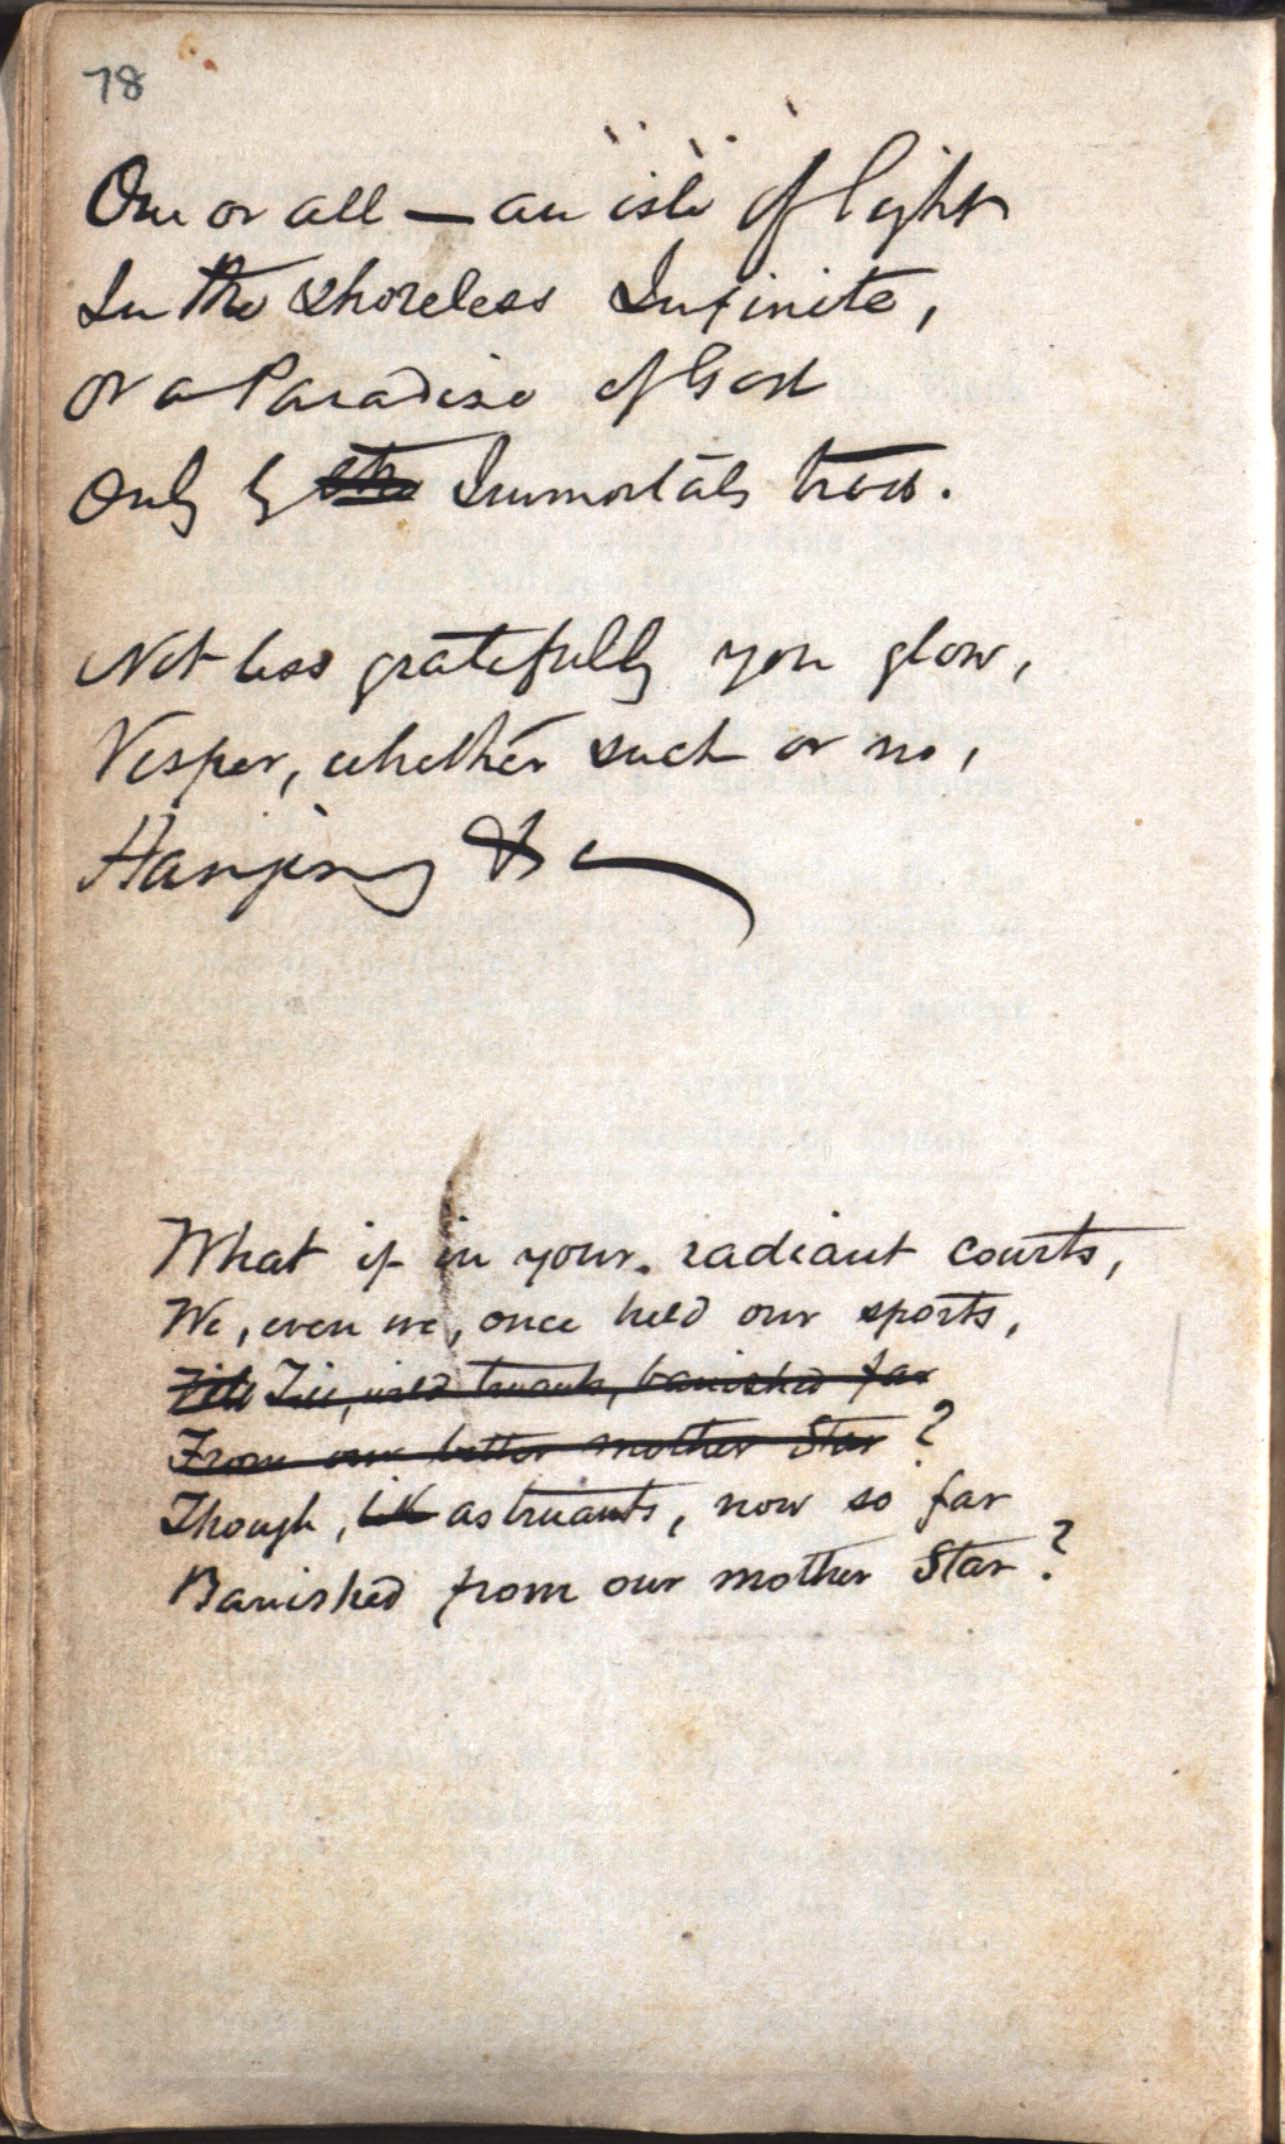 78
One or all — an isle of light
In the shoreless Infinite,
Or a Paradise of God
Only by the Immortals trod.
Not less gratefully you glow,
Vesper, whether such or no,
Hanging &c
What if in your radiant courts,
We, even we, once held our sports,
Till wild truants, banished far
From our better mother Star?
Though, as truants, now so far
Banished from our mother Star?